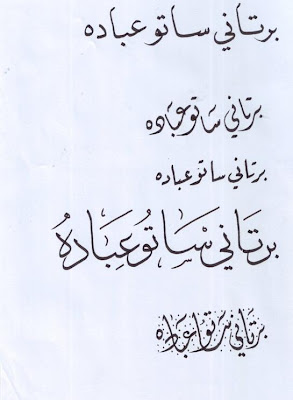 برتاني ساتو عباده
برتاني ساتو عباده
برتاني ساتو عباده
برتاني ساتو عباده
برتاني ساتو عباده